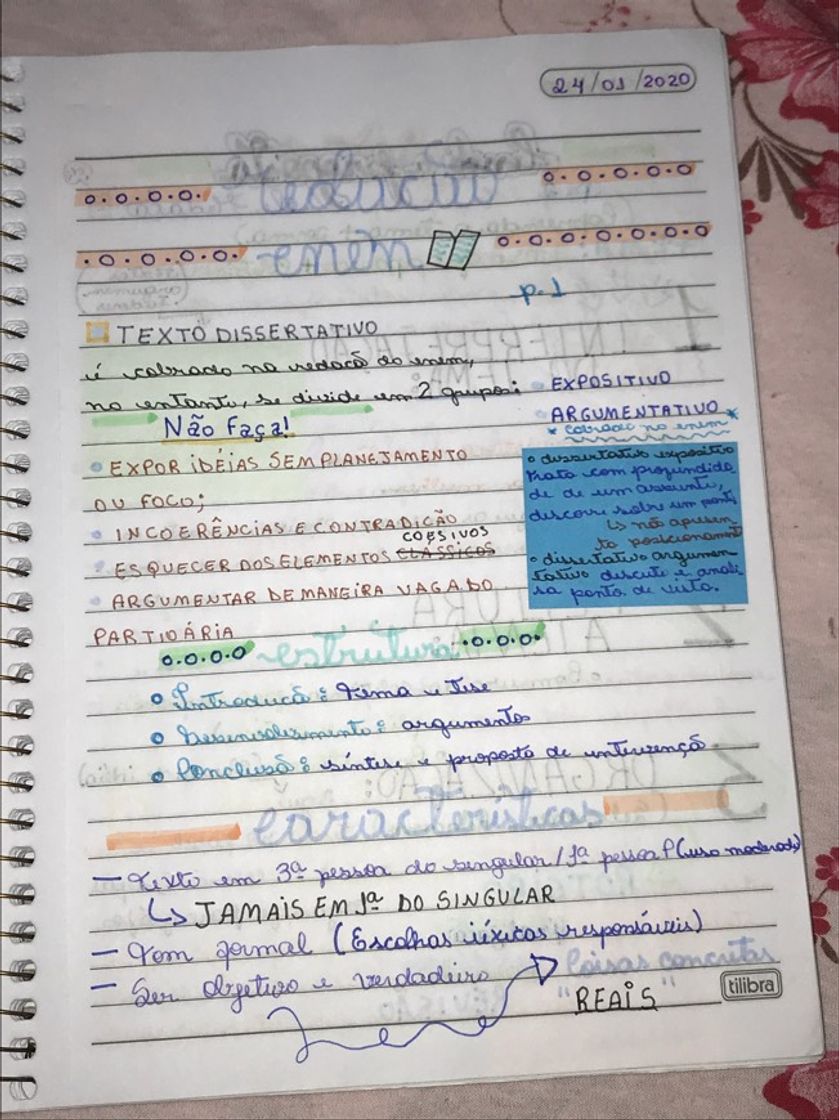 24/01/2020
redação
enem
p. 1
TEXTO DISSERTATIVO
é cobrado na redacã do enem,
no entanto, se divide em 2 grupos:
EXPOSITIVO
ARGUMENTATIVO *
* cobrado no enem
Não Faça!
EXPOR IDÉIAS SEM PLANEJAMENTO
OU FOCO;
INCOERÊNCIAS E CONTRADIÇÃO
COESIVOS
ESQUECER DOS ELEMENTOS CLÁSSICOS
ARGUMENTAR DE MANEIRA VAGA DO
PARTIDÁRIA
dissertativo expositivo
trata com profundida
de de um assunto,
discorre sobre um ponto
↳ não apresen
ta posicionamento
dissertativo argumen
tativo discute e anali
sa ponto de vista.
estrutura
Introducã: tema e tese
Desenvolvimento: argumentos
Conclusã: síntese e proposta de intervençã
características
— texto em 3ª pessoa do singular / 1ª pessoa P (uso moderado)
↳ JAMAIS EM 1ª DO SINGULAR
— Tom formal (Escolhas léxicas responsáveis)
— Ser objetivo e verdadeiro
Coisas concretas
"REAIS"
tilibra